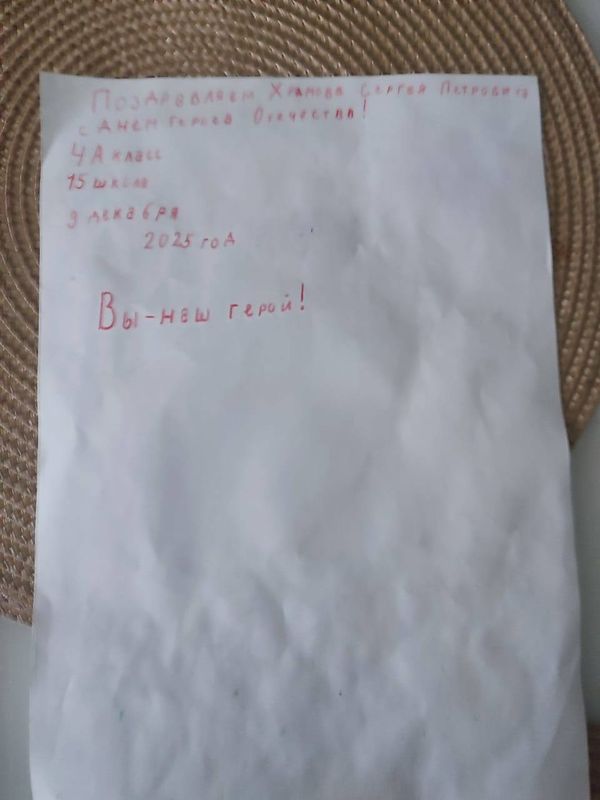 Поздравляем Храмова Сергея Петровича
с Днем Героев Отечества!
4 А класс
15 школа
9 декабря
2025 год
Вы-наш герой!